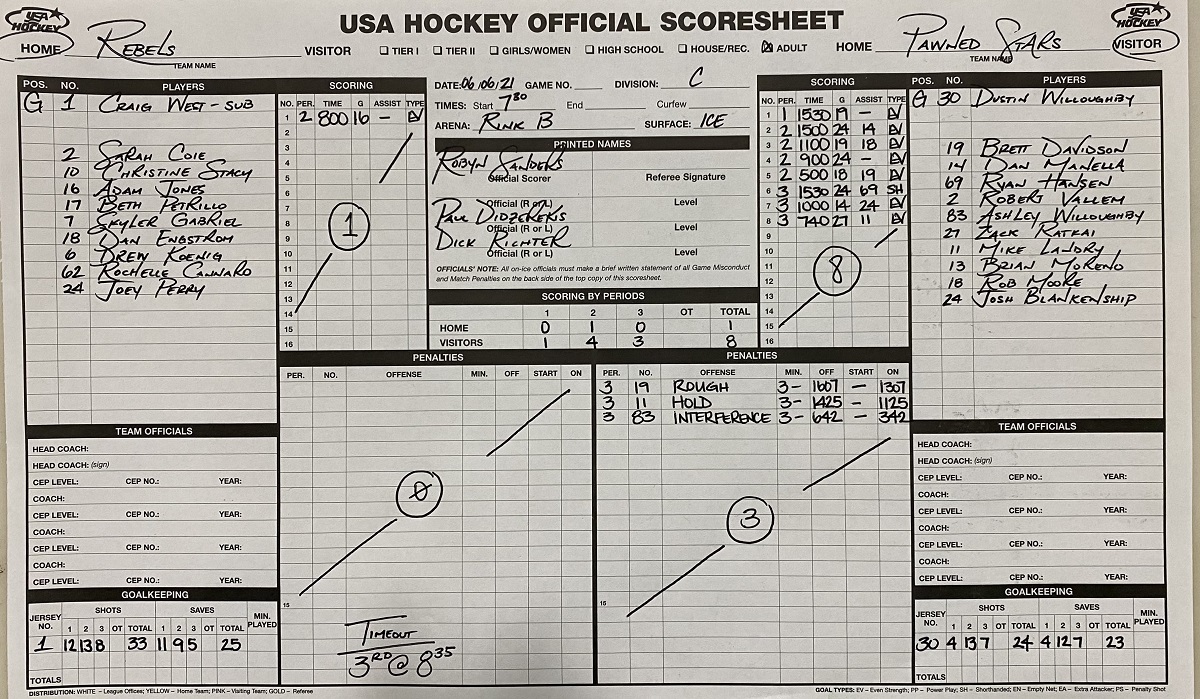 USA HOCKEY OFFICIAL SCORESHEET
USA HOCKEY
HOME REBELS VISITOR
TEAM NAME
☐ TIER I ☐ TIER II ☐ GIRLS/WOMEN ☐ HIGH SCHOOL ☐ HOUSE/REC. ☒ ADULT
HOME PAWNED STARS VISITOR
TEAM NAME
USA HOCKEY
POS. NO. PLAYERS
G 1 CRAIG WEST-SUB
2 SARAH COIE
10 CHRISTINE STACY
16 ADAM JONES
17 BETH PETRILLO
7 SKYLER GABRIEL
18 DAN ENGSTROM
6 DREW KOENIG
62 ROCHELLE CANNARO
24 JOEY PERRY
SCORING
NO. PER. TIME G ASSIST TYPE
1 2 800 16 - EV
2
3
4
5
6
7
8
9
10
11
12
13
14
15
16
1
DATE: 06/06/21 GAME NO. DIVISION: C
TIMES: Start 7:30 End Curfew
ARENA: RINK B SURFACE: ICE
PRINTED NAMES
ROBYN SANDERS
Official Scorer Referee Signature
Official (R or L) Level
PAUL DIDZEREKIS
Official (R or L) Level
DICK RICHTER
Official (R or L) Level
OFFICIALS' NOTE: All on-ice officials must make a brief written statement of all Game Misconduct
and Match Penalties on the back side of the top copy of this scoresheet.
SCORING BY PERIODS
1 2 3 OT TOTAL
HOME 0 1 0 1
VISITORS 1 4 3 8
SCORING
NO. PER. TIME G ASSIST TYPE
1 1 1530 19 - EV
2 2 1500 24 14 EV
3 2 1100 19 18 EV
4 2 900 24 - EV
5 2 500 18 19 EV
6 3 1530 24 69 SH
7 3 1000 14 24 EV
8 3 740 27 11 EV
9
10
11
12
13
14
15
16
8
POS. NO. PLAYERS
G 30 DUSTIN WILLOUGHBY
19 BRETT DAVIDSON
14 DAN MANELLA
69 RYAN HANSEN
2 ROBERT VALLEM
83 ASHLEY WILLOUGHBY
27 ZACK RATKAI
11 MIKE LANDRY
13 BRIAN MORENO
18 ROB MOORE
24 JOSH BLANKENSHIP
PENALTIES
PER. NO. OFFENSE MIN. OFF START ON
0
15
TIMEOUT
3RD @ 8:35
PENALTIES
PER. NO. OFFENSE MIN. OFF START ON
3 19 ROUGH 3- 1607 - 1307
3 11 HOLD 3- 1425 - 1125
3 83 INTERFERENCE 3- 642 - 342
3
15
TEAM OFFICIALS
HEAD COACH:
HEAD COACH: (sign)
CEP LEVEL: CEP NO.: YEAR:
COACH:
CEP LEVEL: CEP NO.: YEAR:
COACH:
CEP LEVEL: CEP NO.: YEAR:
COACH:
CEP LEVEL: CEP NO.: YEAR:
GOALKEEPING
JERSEY NO. SHOTS SAVES MIN. PLAYED
1 2 3 OT TOTAL 1 2 3 OT TOTAL
1 12 13 8 33 11 9 5 25
TOTALS
TEAM OFFICIALS
HEAD COACH:
HEAD COACH: (sign)
CEP LEVEL: CEP NO.: YEAR:
COACH:
CEP LEVEL: CEP NO.: YEAR:
COACH:
CEP LEVEL: CEP NO.: YEAR:
COACH:
CEP LEVEL: CEP NO.: YEAR:
GOALKEEPING
JERSEY NO. SHOTS SAVES MIN. PLAYED
1 2 3 OT TOTAL 1 2 3 OT TOTAL
30 4 13 7 24 4 12 7 23
TOTALS
DISTRIBUTION: WHITE – League Offices; YELLOW – Home Team; PINK – Visiting Team; GOLD – Referee
GOAL TYPES: EV – Even Strength; PP – Power Play; SH – Shorthanded; EN – Empty Net; EA – Extra Attacker; PS – Penalty Shot